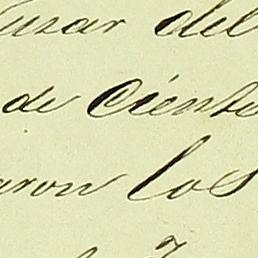 usar del
de Ciento
aron los